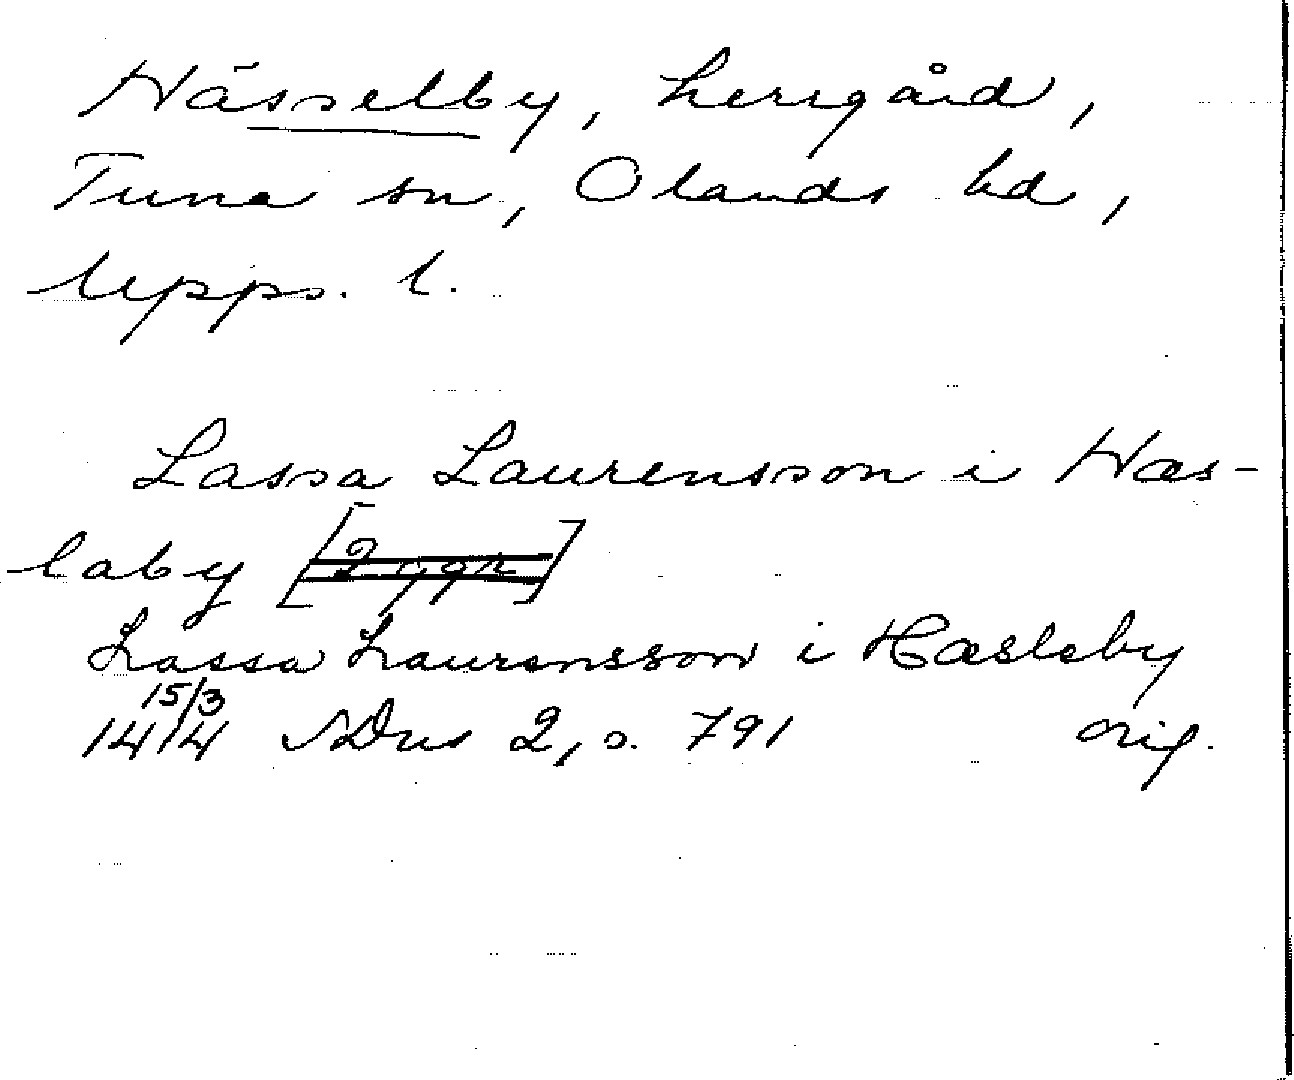 Hässelby, herrgård,
Tuna sn, Olands hd,
Upps. l.
Lassa Laurensson i Hæs-
laby [2 ggr]
Lassa Laurensson i Hæsleby
15/3
1414 SDns 2, s. 791 orig.